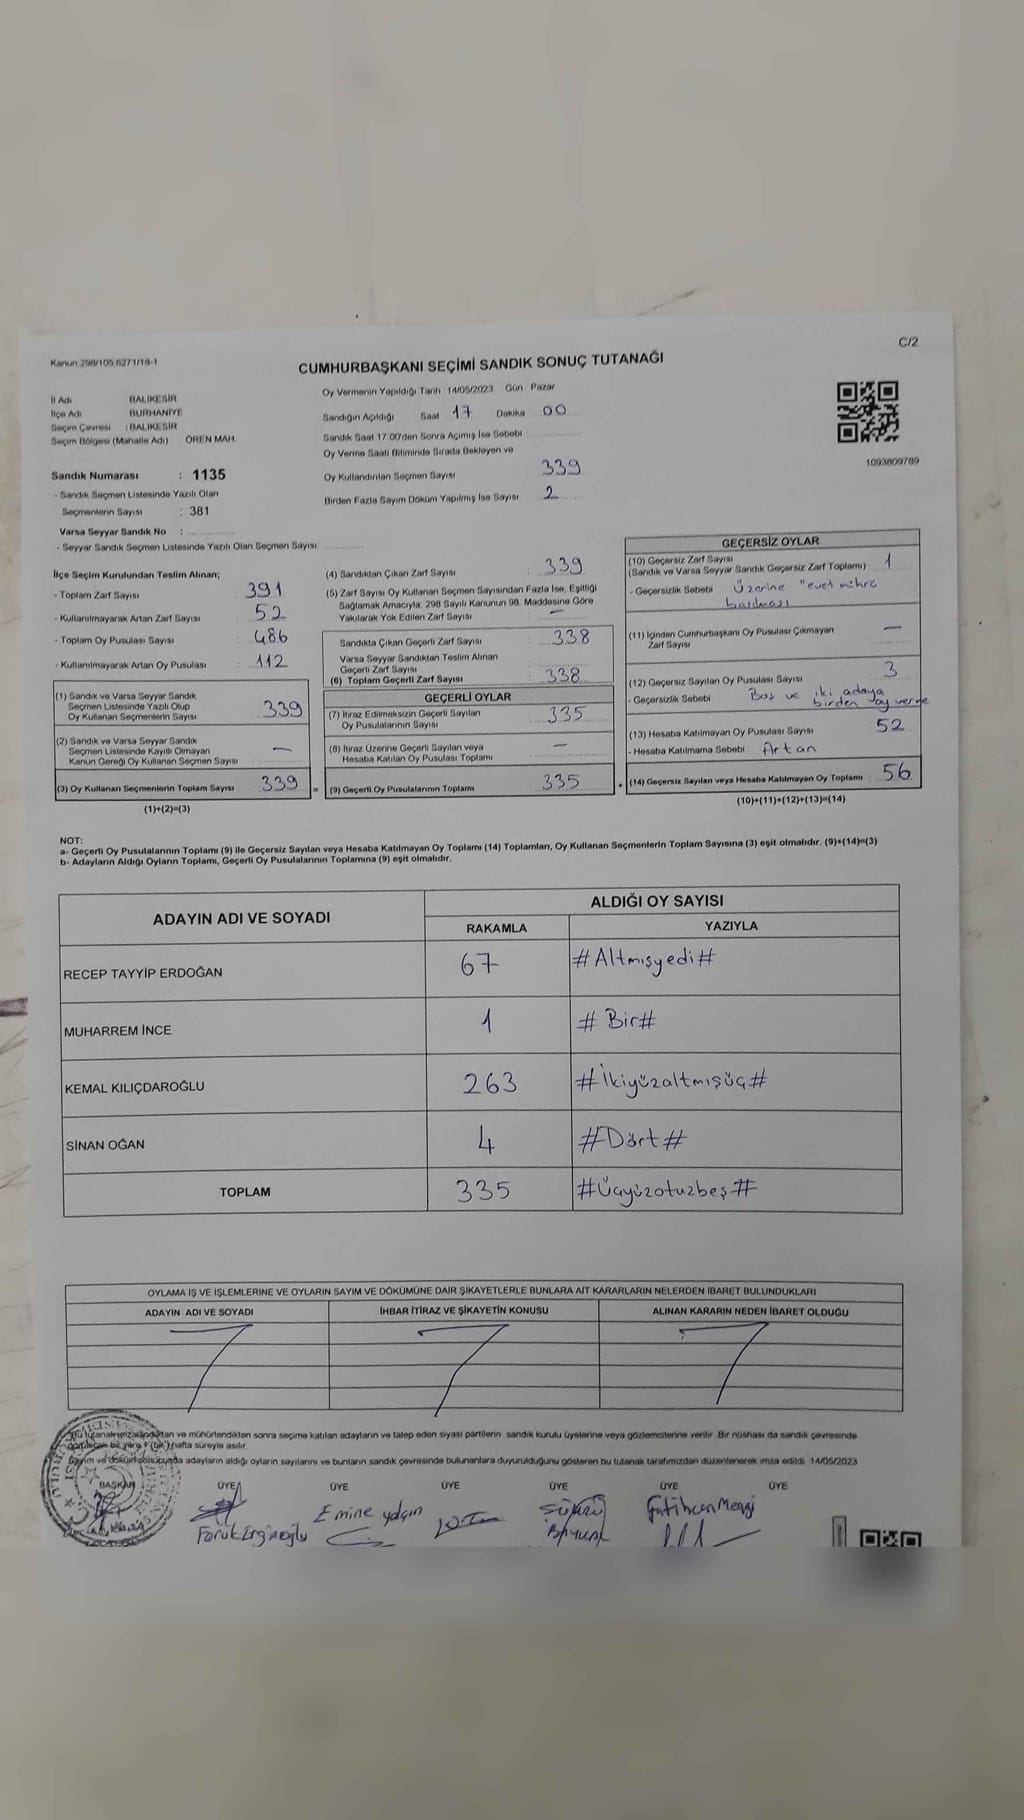 C/2
Kanun 298/105,6271/18-1
CUMHURBAŞKANI SEÇİMİ SANDIK SONUÇ TUTANAĞI
İl Adı BALIKESİR
İlçe Adı BURHANİYE
Seçim Çevresi : BALIKESİR
Seçim Bölgesi (Mahalle Adı) ÖREN MAH.
Sandık Numarası : 1135
- Sandık Seçmen Listesinde Yazılı Olan
Seçmenlerin Sayısı : 381
Varsa Seyyar Sandık No :
- Seyyar Sandık Seçmen Listesinde Yazılı Olan Seçmen Sayısı:
Oy Vermenin Yapıldığı Tarih : 14/05/2023 Gün Pazar
Sandığın Açıldığı Saat 17 Dakika 00
Sandık Saat 17:00'den Sonra Açımış İse Sebebi :
Oy Verme Saati Bitiminde Sırada Bekleyen ve
Oy Kullandırılan Seçmen Sayısı : 339
Birden Fazla Sayım Döküm Yapılmış İse Sayısı : 2
1093809789
İlçe Seçim Kurulundan Teslim Alınan;
- Toplam Zarf Sayısı : 391
- Kullanılmayarak Artan Zarf Sayısı : 52
- Toplam Oy Pusulası Sayısı : 486
- Kullanılmayarak Artan Oy Pusulası : 112
(1) Sandık ve Varsa Seyyar Sandık
Seçmen Listesinde Yazılı Olup
Oy Kullanan Seçmenlerin Sayısı : 339
(2) Sandık ve Varsa Seyyar Sandık
Seçmen Listesinde Kayıtlı Olmayan
Kanun Gereği Oy Kullanan Seçmen Sayısı : —
(3) Oy Kullanan Seçmenlerin Toplam Sayısı : 339
(1)+(2)=(3)
=
(4) Sandıktan Çıkan Zarf Sayısı : 339
(5) Zarf Sayısı Oy Kullanan Seçmen Sayısından Fazla İse, Eşitliği
Sağlamak Amacıyla, 298 Sayılı Kanunun 98. Maddesine Göre
Yakılarak Yok Edilen Zarf Sayısı : —
Sandıkta Çıkan Geçerli Zarf Sayısı : 338
Varsa Seyyar Sandıktan Teslim Alınan
Geçerli Zarf Sayısı :
(6) Toplam Geçerli Zarf Sayısı : 338
GEÇERLİ OYLAR
(7) İtiraz Edilmeksizin Geçerli Sayılan
Oy Pusulalarının Sayısı : 335
(8) İtiraz Üzerine Geçerli Sayılan veya
Hesaba Katılan Oy Pusulası Toplamı : —
(9) Geçerli Oy Pusulalarının Toplamı : 335
+
GEÇERSİZ OYLAR
(10) Geçersiz Zarf Sayısı
(Sandık ve Varsa Seyyar Sandık Geçersiz Zarf Toplamı) : 1
- Geçersizlik Sebebi : Üzerine "evet mührü
basılması
(11) İçinden Cumhurbaşkanı Oy Pusulası Çıkmayan
Zarf Sayısı : —
(12) Geçersiz Sayılan Oy Pusulası Sayısı : 3
- Geçersizlik Sebebi : Boş ve iki adaya
birden oy verme
(13) Hesaba Katılmayan Oy Pusulası Sayısı : 52
- Hesaba Katılmama Sebebi : Artan
(14) Geçersiz Sayılan veya Hesaba Katılmayan Oy Toplamı : 56
(10)+(11)+(12)+(13)=(14)
NOT:
a- Geçerli Oy Pusulalarının Toplamı (9) ile Geçersiz Sayılan veya Hesaba Katılmayan Oy Toplamı (14) Toplamları, Oy Kullanan Seçmenlerin Toplam Sayısına (3) eşit olmalıdır. (9)+(14)=(3)
b- Adayların Aldığı Oyların Toplamı, Geçerli Oy Pusulalarının Toplamına (9) eşit olmalıdır.
ADAYIN ADI VE SOYADI ALDIĞI OY SAYISI
RAKAMLA YAZIYLA
RECEP TAYYİP ERDOĞAN 67 #Altmışyedi#
MUHARREM İNCE 1 #Bir#
KEMAL KILIÇDAROĞLU 263 #İkiyüzaltmışüç#
SİNAN OĞAN 4 #Dört#
TOPLAM 335 #Üçyüzotuzbeş#
OYLAMA İŞ VE İŞLEMLERİNE VE OYLARIN SAYIM VE DÖKÜMÜNE DAİR ŞİKAYETLERLE BUNLARA AİT KARARLARIN NELERDEN İBARET BULUNDUKLARI
ADAYIN ADI VE SOYADI İHBAR İTİRAZ VE ŞİKAYETİN KONUSU ALINAN KARARIN NEDEN İBARET OLDUĞU
Bu tutanak imzalandıktan ve mühürlendikten sonra seçime katılan adayların ve talep eden siyasi partilerin sandık kurulu üyelerine veya gözlemcilerine verilir. Bir nüshası da sandık çevresinde
görülecek bir yere 1 (bir) hafta süreyle asılır.
Sayım ve döküm sonucunda adayların aldığı oyların sayılarını ve bunların sandık çevresinde bulunanlara duyurulduğunu gösteren bu tutanak tarafımızdan düzenlenerek imza edildi. 14/05/2023
BAŞKAN ÜYE ÜYE ÜYE ÜYE ÜYE ÜYE
Faruk Emine yalçın Şükrü Fatihcan